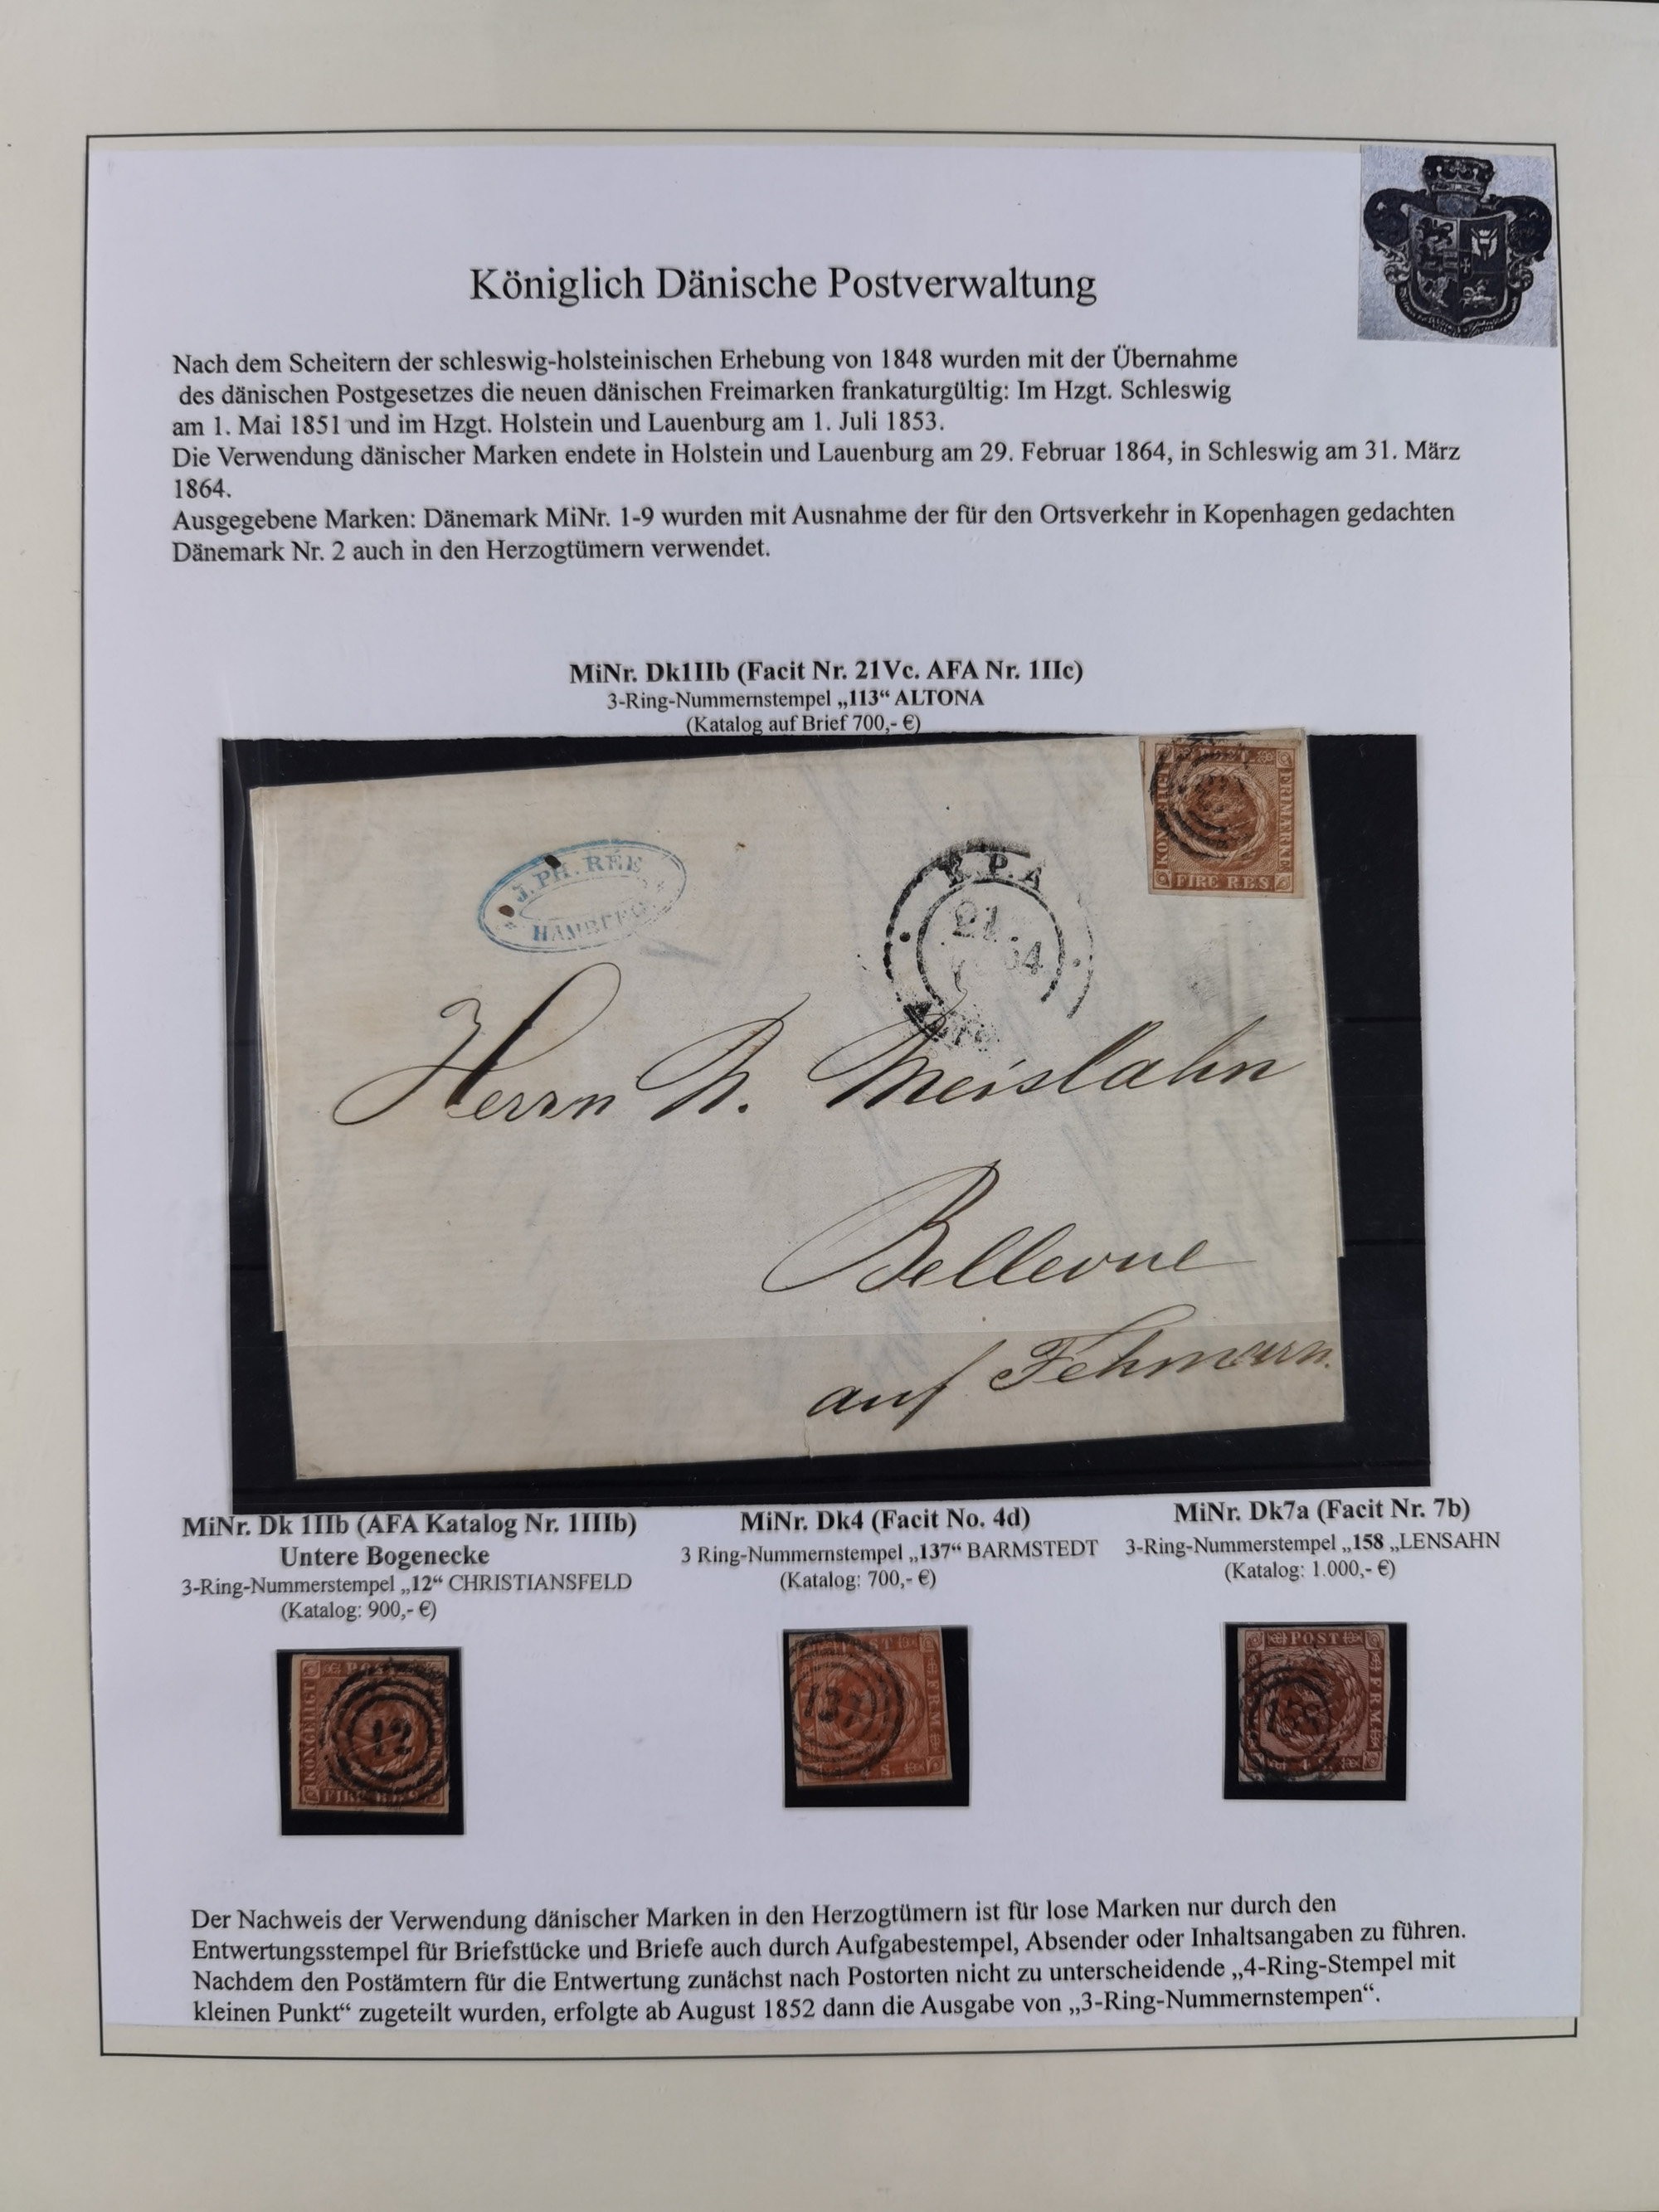 Königlich Dänische Postverwaltung
Nach dem Scheitern der schleswig-holsteinischen Erhebung von 1848 wurden mit der Übernahme
des dänischen Postgesetzes die neuen dänischen Freimarken frankaturgültig: Im Hzgt. Schleswig
am 1. Mai 1851 und im Hzgt. Holstein und Lauenburg am 1. Juli 1853.
Die Verwendung dänischer Marken endete in Holstein und Lauenburg am 29. Februar 1864, in Schleswig am 31. März
1864.
Ausgegebene Marken: Dänemark MiNr. 1-9 wurden mit Ausnahme der für den Ortsverkehr in Kopenhagen gedachten
Dänemark Nr. 2 auch in den Herzogtümern verwendet.
MiNr. Dk1IIb (Facit Nr. 21Vc. AFA Nr. 1IIc)
3-Ring-Nummernstempel „113“ ALTONA
(Katalog auf Brief 700,- €)
FRIMÆRKE
FIRE R.B.S.
J. PH. RÉE
HAMBURG
K.P.A
21
54
Herrn N. Meislahn
Bellevue
auf Fehmarn.
MiNr. Dk 1IIb (AFA Katalog Nr. 1IIIb)
Untere Bogenecke
3-Ring-Nummerstempel „12“ CHRISTIANSFELD
(Katalog: 900,- €)
MiNr. Dk4 (Facit No. 4d)
3 Ring-Nummernstempel „137“ BARMSTEDT
(Katalog: 700,- €)
MiNr. Dk7a (Facit Nr. 7b)
3-Ring-Nummerstempel „158 „LENSAHN
(Katalog: 1.000,- €)
KONGELIGT
12
FIRE
137
FRM
S.
POST
158
FRM
Der Nachweis der Verwendung dänischer Marken in den Herzogtümern ist für lose Marken nur durch den
Entwertungsstempel für Briefstücke und Briefe auch durch Aufgabestempel, Absender oder Inhaltsangaben zu führen.
Nachdem den Postämtern für die Entwertung zunächst nach Postorten nicht zu unterscheidende „4-Ring-Stempel mit
kleinen Punkt“ zugeteilt wurden, erfolgte ab August 1852 dann die Ausgabe von „3-Ring-Nummernstempen“.